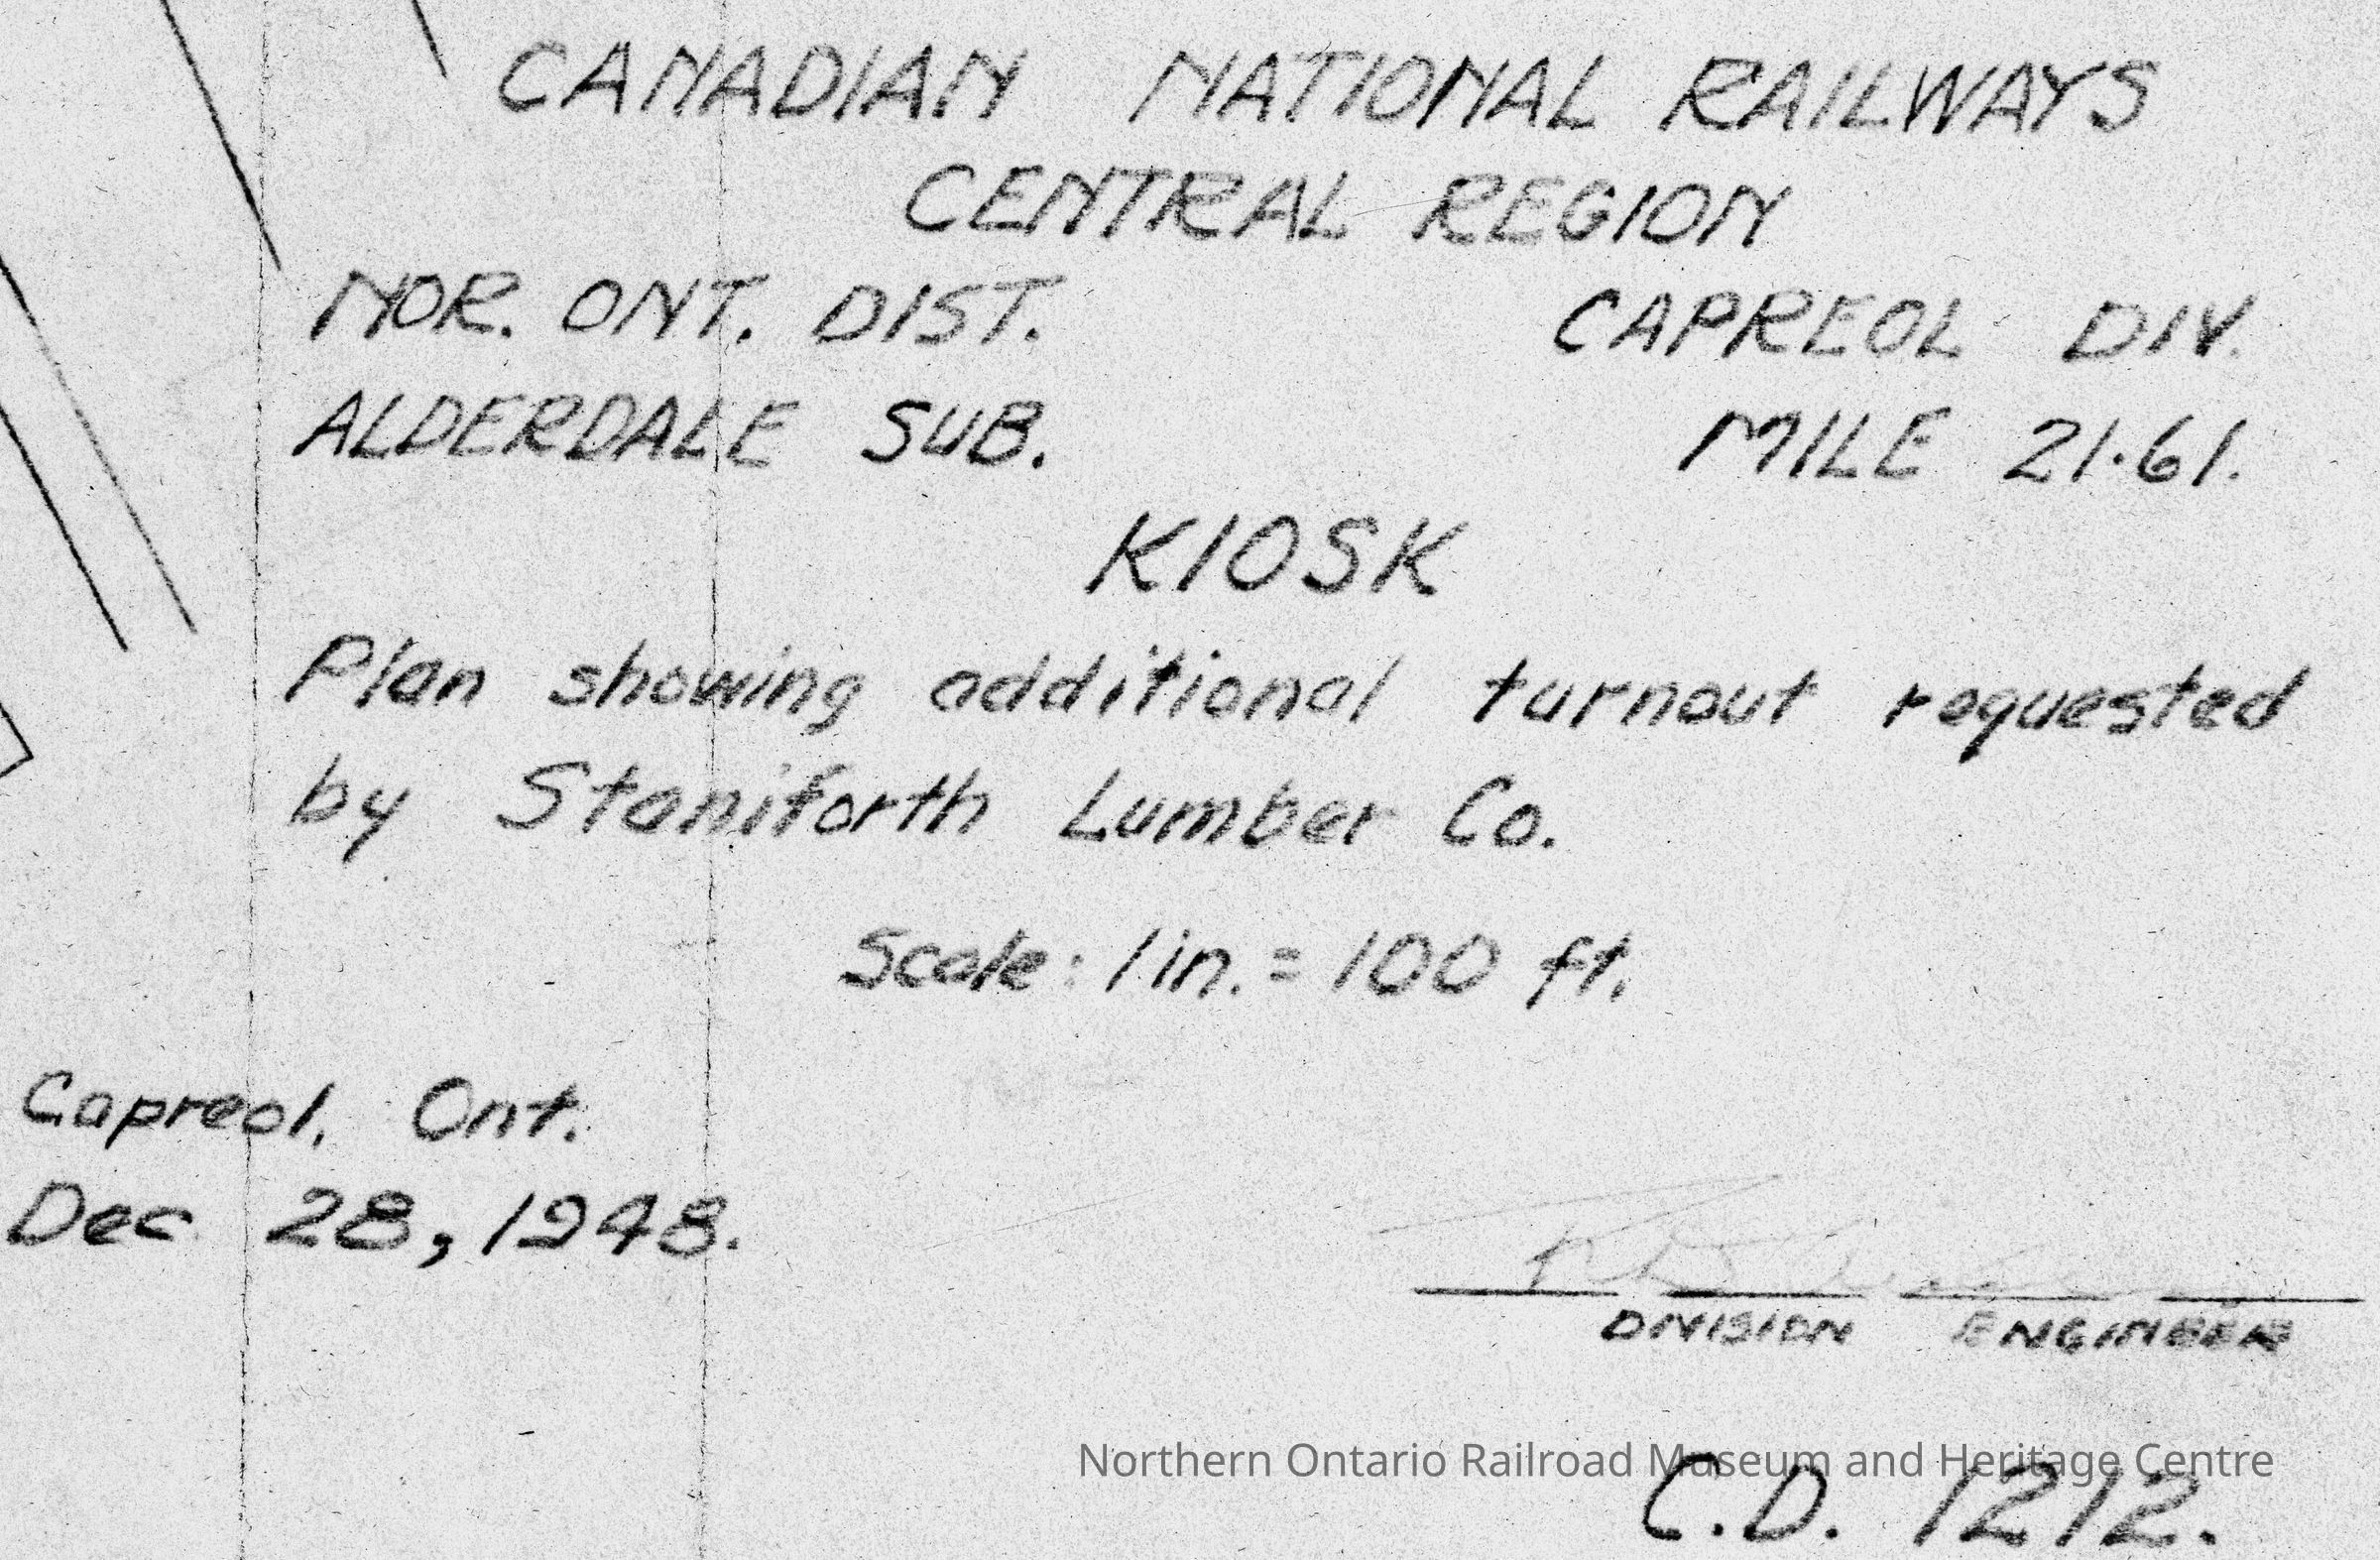 CANADIAN NATIONAL RAILWAYS
CENTRAL REGION
NOR. ONT. DIST. CAPREOL DIV.
ALDERDALE SUB. MILE 21.61.
KIOSK
Plan showing additional turnout requested
by Staniforth Lumber Co.
Scale: 1 in. = 100 ft.
Capreol, Ont.
Dec 28, 1948.
DIVISION ENGINEER
Northern Ontario Railroad Museum and Heritage Centre
C.D. 1212.